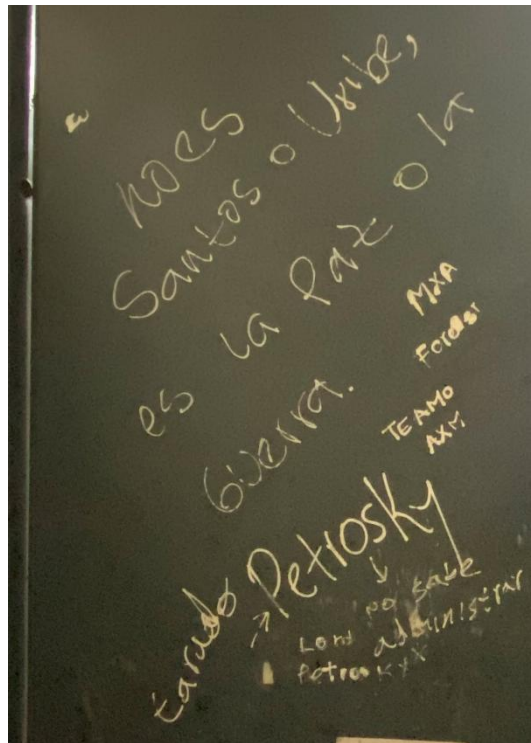 no es
Santos o Uribe,
es la Paz o la
Guerra.
MXA
Forever
TE AMO
AXM
tarado → Petrosky
↓
no sabe
administrar
Lord
Petrosky X